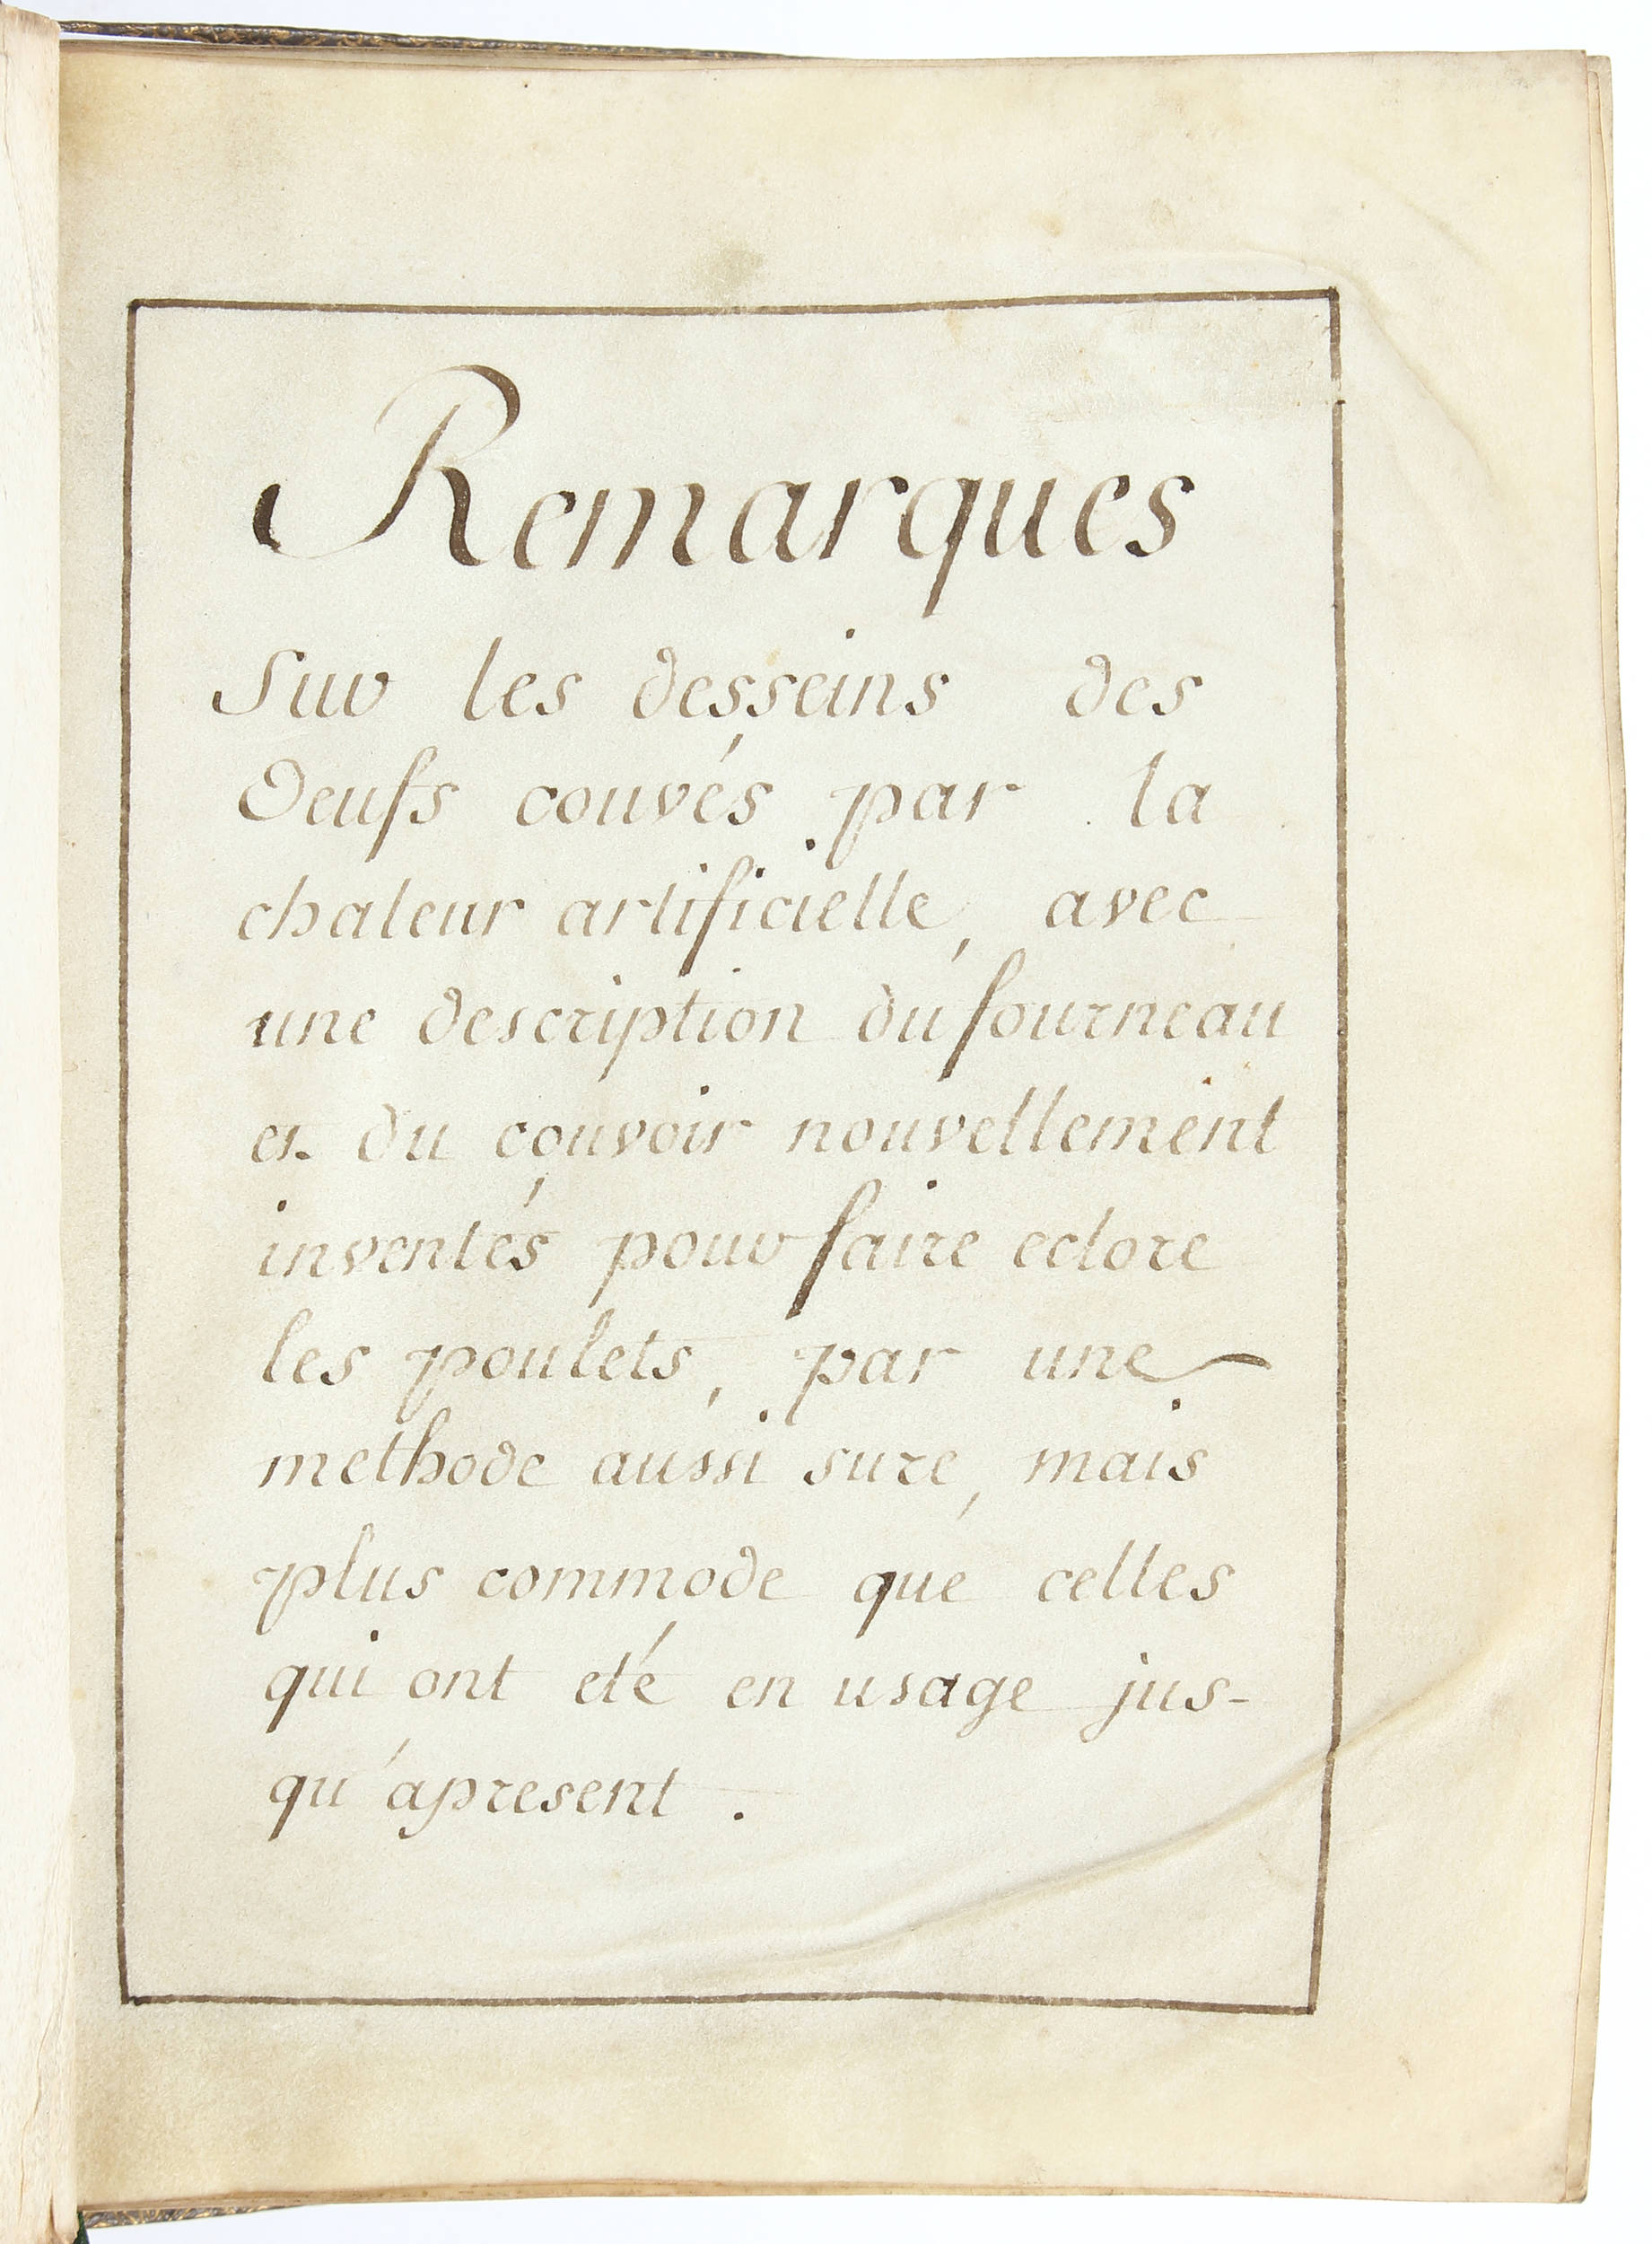 Remarques
Sur les desseins des
Oeufs couvés par la
chaleur artificielle, avec
une description du fourneau
et du couvoir nouvellement
inventés pour faire eclore
les poulets, par une
methode aussi sure, mais
plus commode que celles
qui ont eté en usage jus-
qu'apresent.